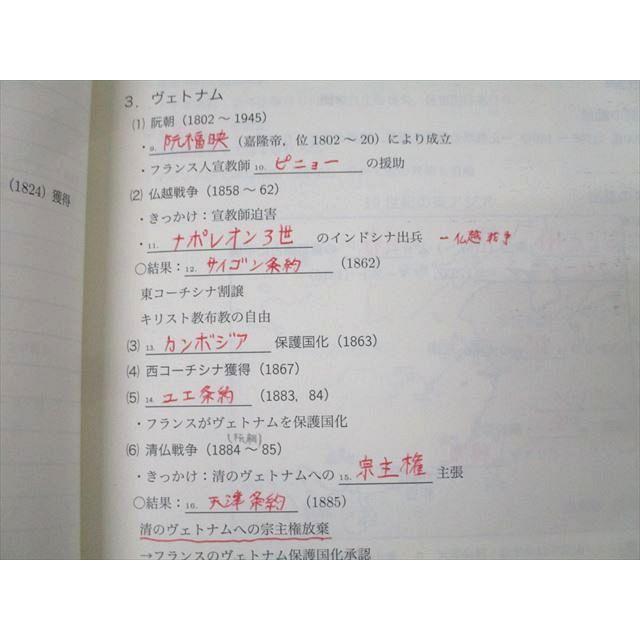 3．ヴェトナム
(1) 阮朝（1802〜1945）
・9. 阮福映（嘉隆帝，位1802〜20）により成立
・フランス人宣教師 10. ピニョー の援助
(1824) 獲得
(2) 仏越戦争（1858〜62）
・きっかけ：宣教師迫害
・11. ナポレオン3世 のインドシナ出兵 ー仏越戦争
〇結果：12. サイゴン条約（1862）
東コーチシナ割譲
キリスト教布教の自由
(3) 13. カンボジア 保護国化（1863）
(4) 西コーチシナ獲得（1867）
(5) 14. ユエ条約（1883，84）
・フランスがヴェトナムを保護国化
(阮朝)
(6) 清仏戦争（1884〜85）
・きっかけ：清のヴェトナムへの 15. 宗主権 主張
〇結果：16. 天津条約（1885）
清のヴェトナムへの宗主権放棄
→フランスのヴェトナム保護国化承認